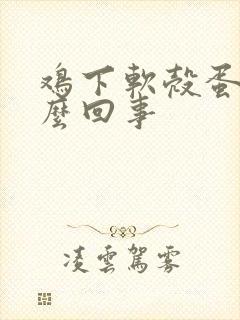 鸡下軟殼蛋
麼回事
凌雲駕霧